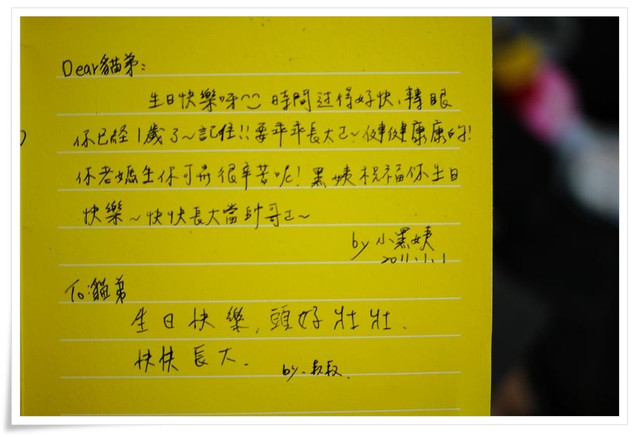 Dear貓弟:
生日快樂呀~ 時間过得好快,轉眼
你已經1歲了~記住!!要乖乖長大ㄛ~健健康康的!
你老媽生你可是很辛苦呢!黑姨祝福你生日
快樂~快快長大當帥哥ㄛ~
by 小黑姨
2011.1.1
To:貓弟
生日快樂,頭好壯壯.
快快長大.
by.叔叔.